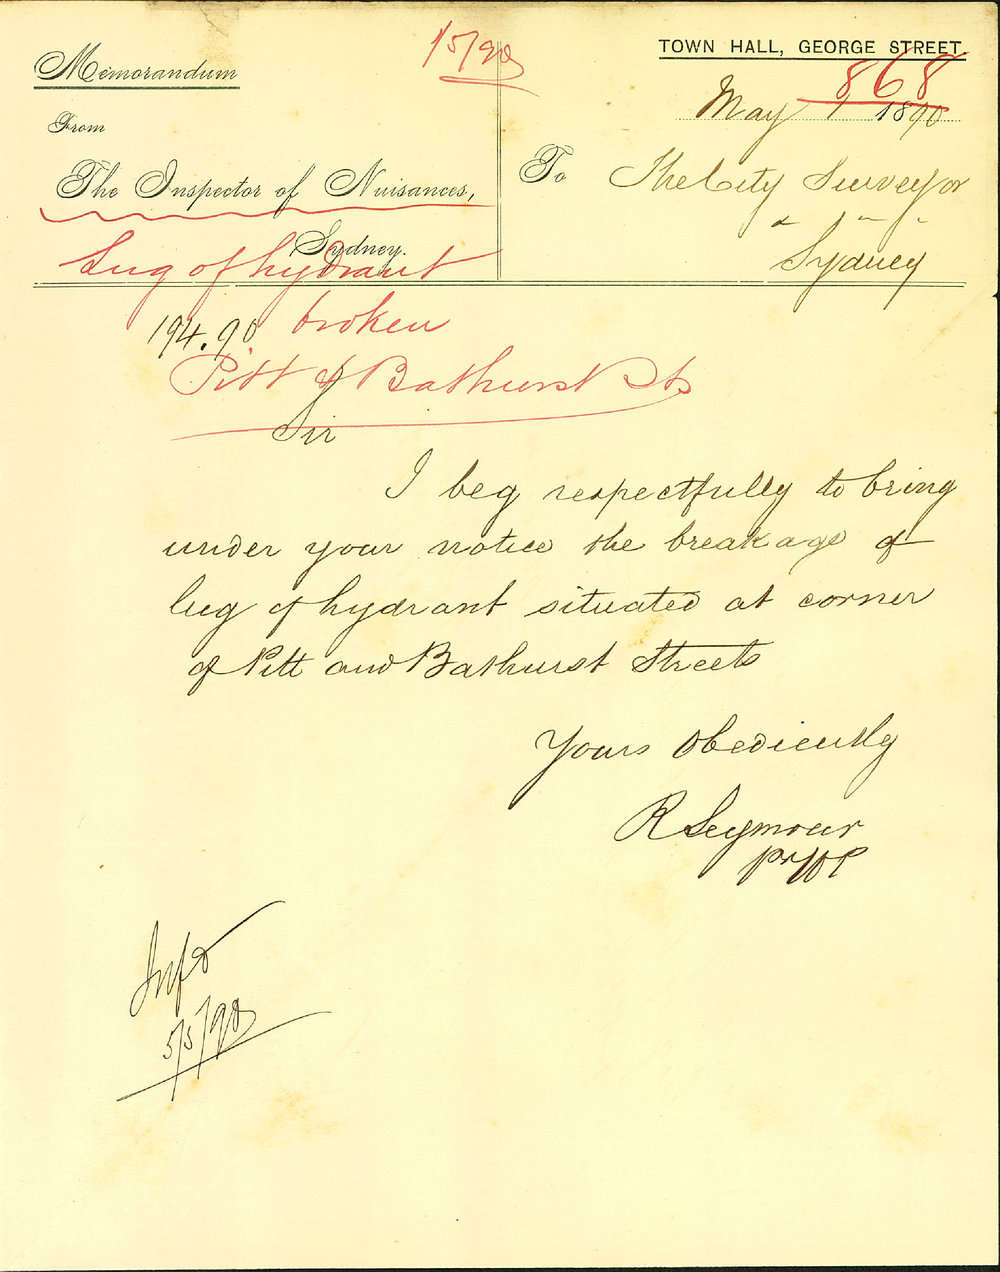 1/5/90
TOWN HALL, GEORGE STREET.
868
Memorandum
May 1 1890
From
The Inspector of Nuisances,
To The City Surveyor
Sydney.
Sydney
Lug of hydrant
broken
194.90
Pitt & Bathurst Sts
Sir
I beg respectfully to bring
under your notice the breakage of
lug of hydrant situated at corner
of Pitt and Bathurst Streets
Yours Obediently
R Seymour
5/5/90